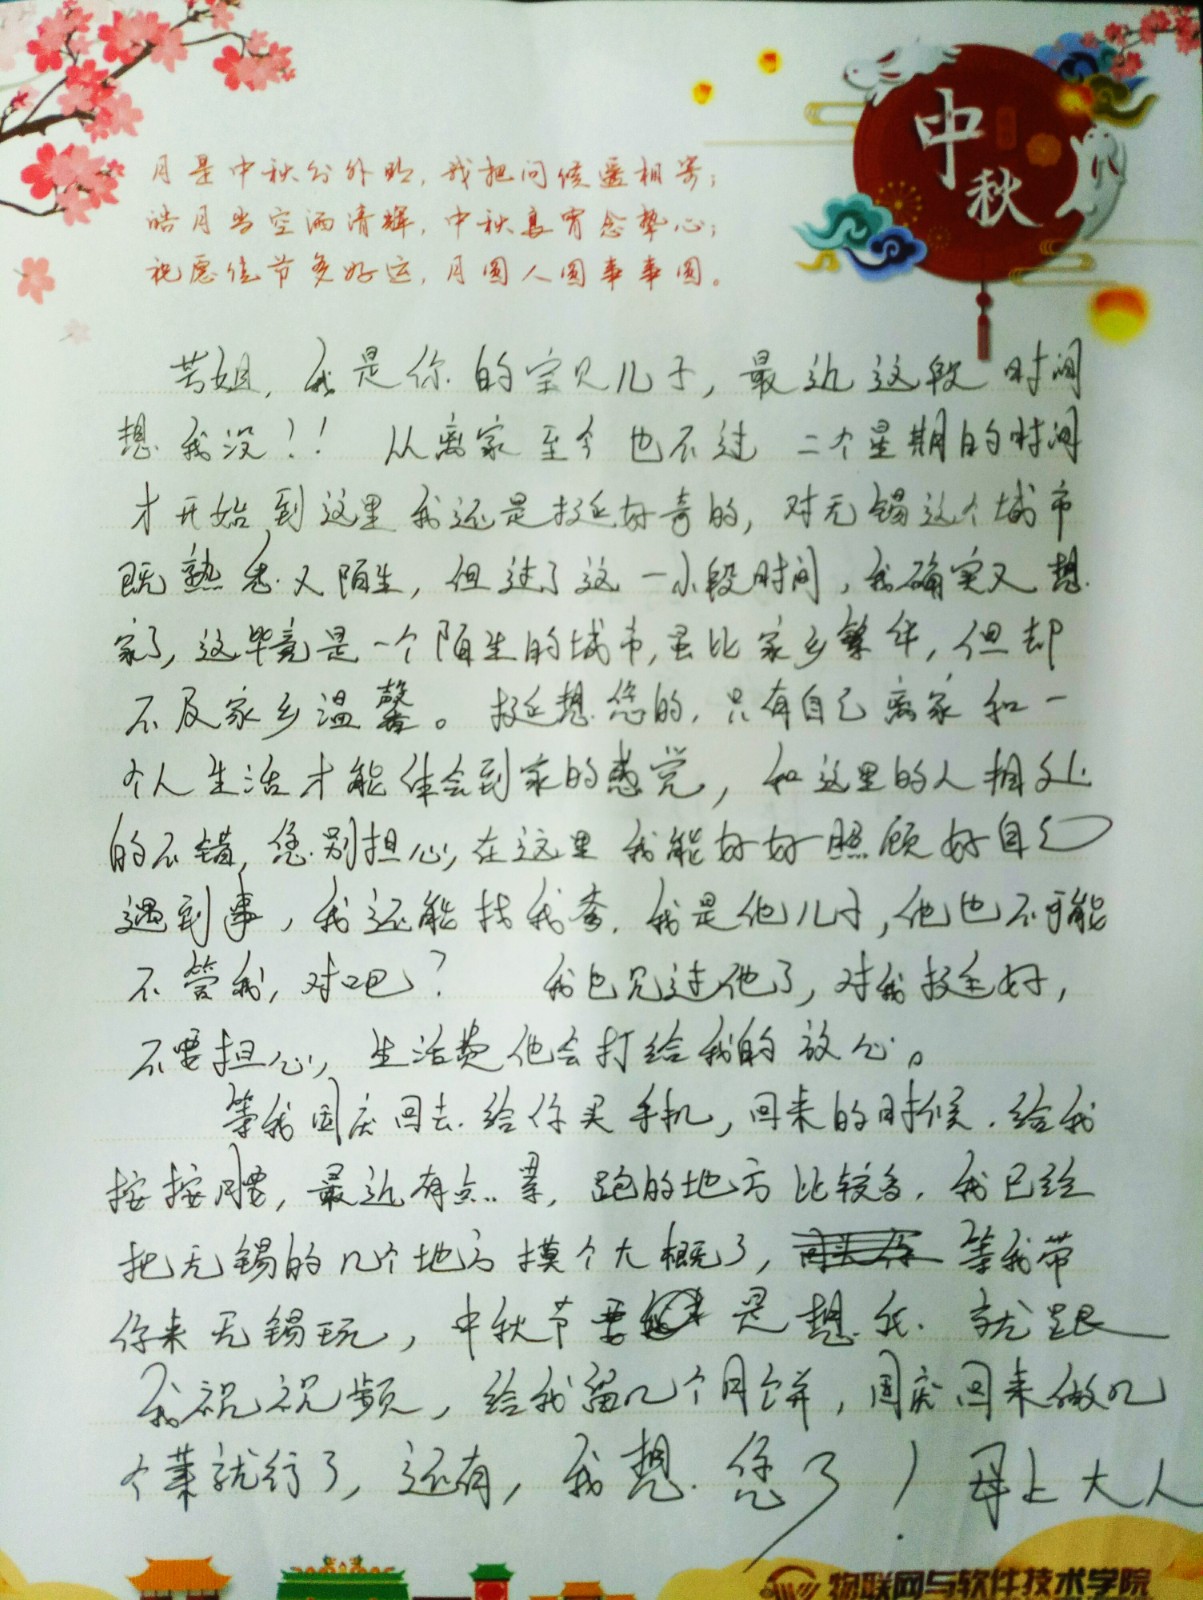 中秋
月是中秋分外明，我把问候遥相寄；
皓月当空洒清辉，中秋良宵念挚心；
祝愿佳节多好运，月圆人圆事事圆。
芳姐，我是你的宝贝儿子，最近这段时间
想我没！！ 从离家至今也不过二个星期的时间
才开始到这里我还是挺好奇的，对无锡这个城市
既熟悉又陌生，但过了这一小段时间，我确实又想
家了，这毕竟是一个陌生的城市，虽比家乡繁华，但却
不及家乡温馨。挺想您的，只有自己离家和一
个人生活才能体会到家的感觉，和这里的人相处
的不错，您别担心，在这里我能好好照顾好自己
遇到事，我还能找我爸，我是他儿子，他也不可能
不管我，对吧？ 我也见过他了，对我挺好，
不要担心，生活费他会打给我的放心。
等我国庆回去给你买手机，回来的时候，给我
按按腰，最近有点累，跑的地方比较多，我已经
把无锡的几个地方摸个大概了，等我带
你来无锡玩，中秋节要是想我，就跟
我视视频，给我留几个月饼，国庆回来做几
个菜就行了，还有，我想您了！母上大人
物联网与软件技术学院